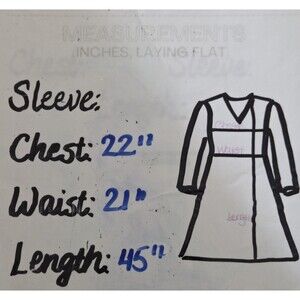 MEASUREMENTS
INCHES, LAYING FLAT
Sleeve:
Chest: 22"
Waist: 21"
Length: 45"
Chest
Waist
Length